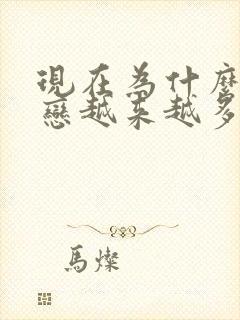 現在為什麼
戀越来越多
馬燦